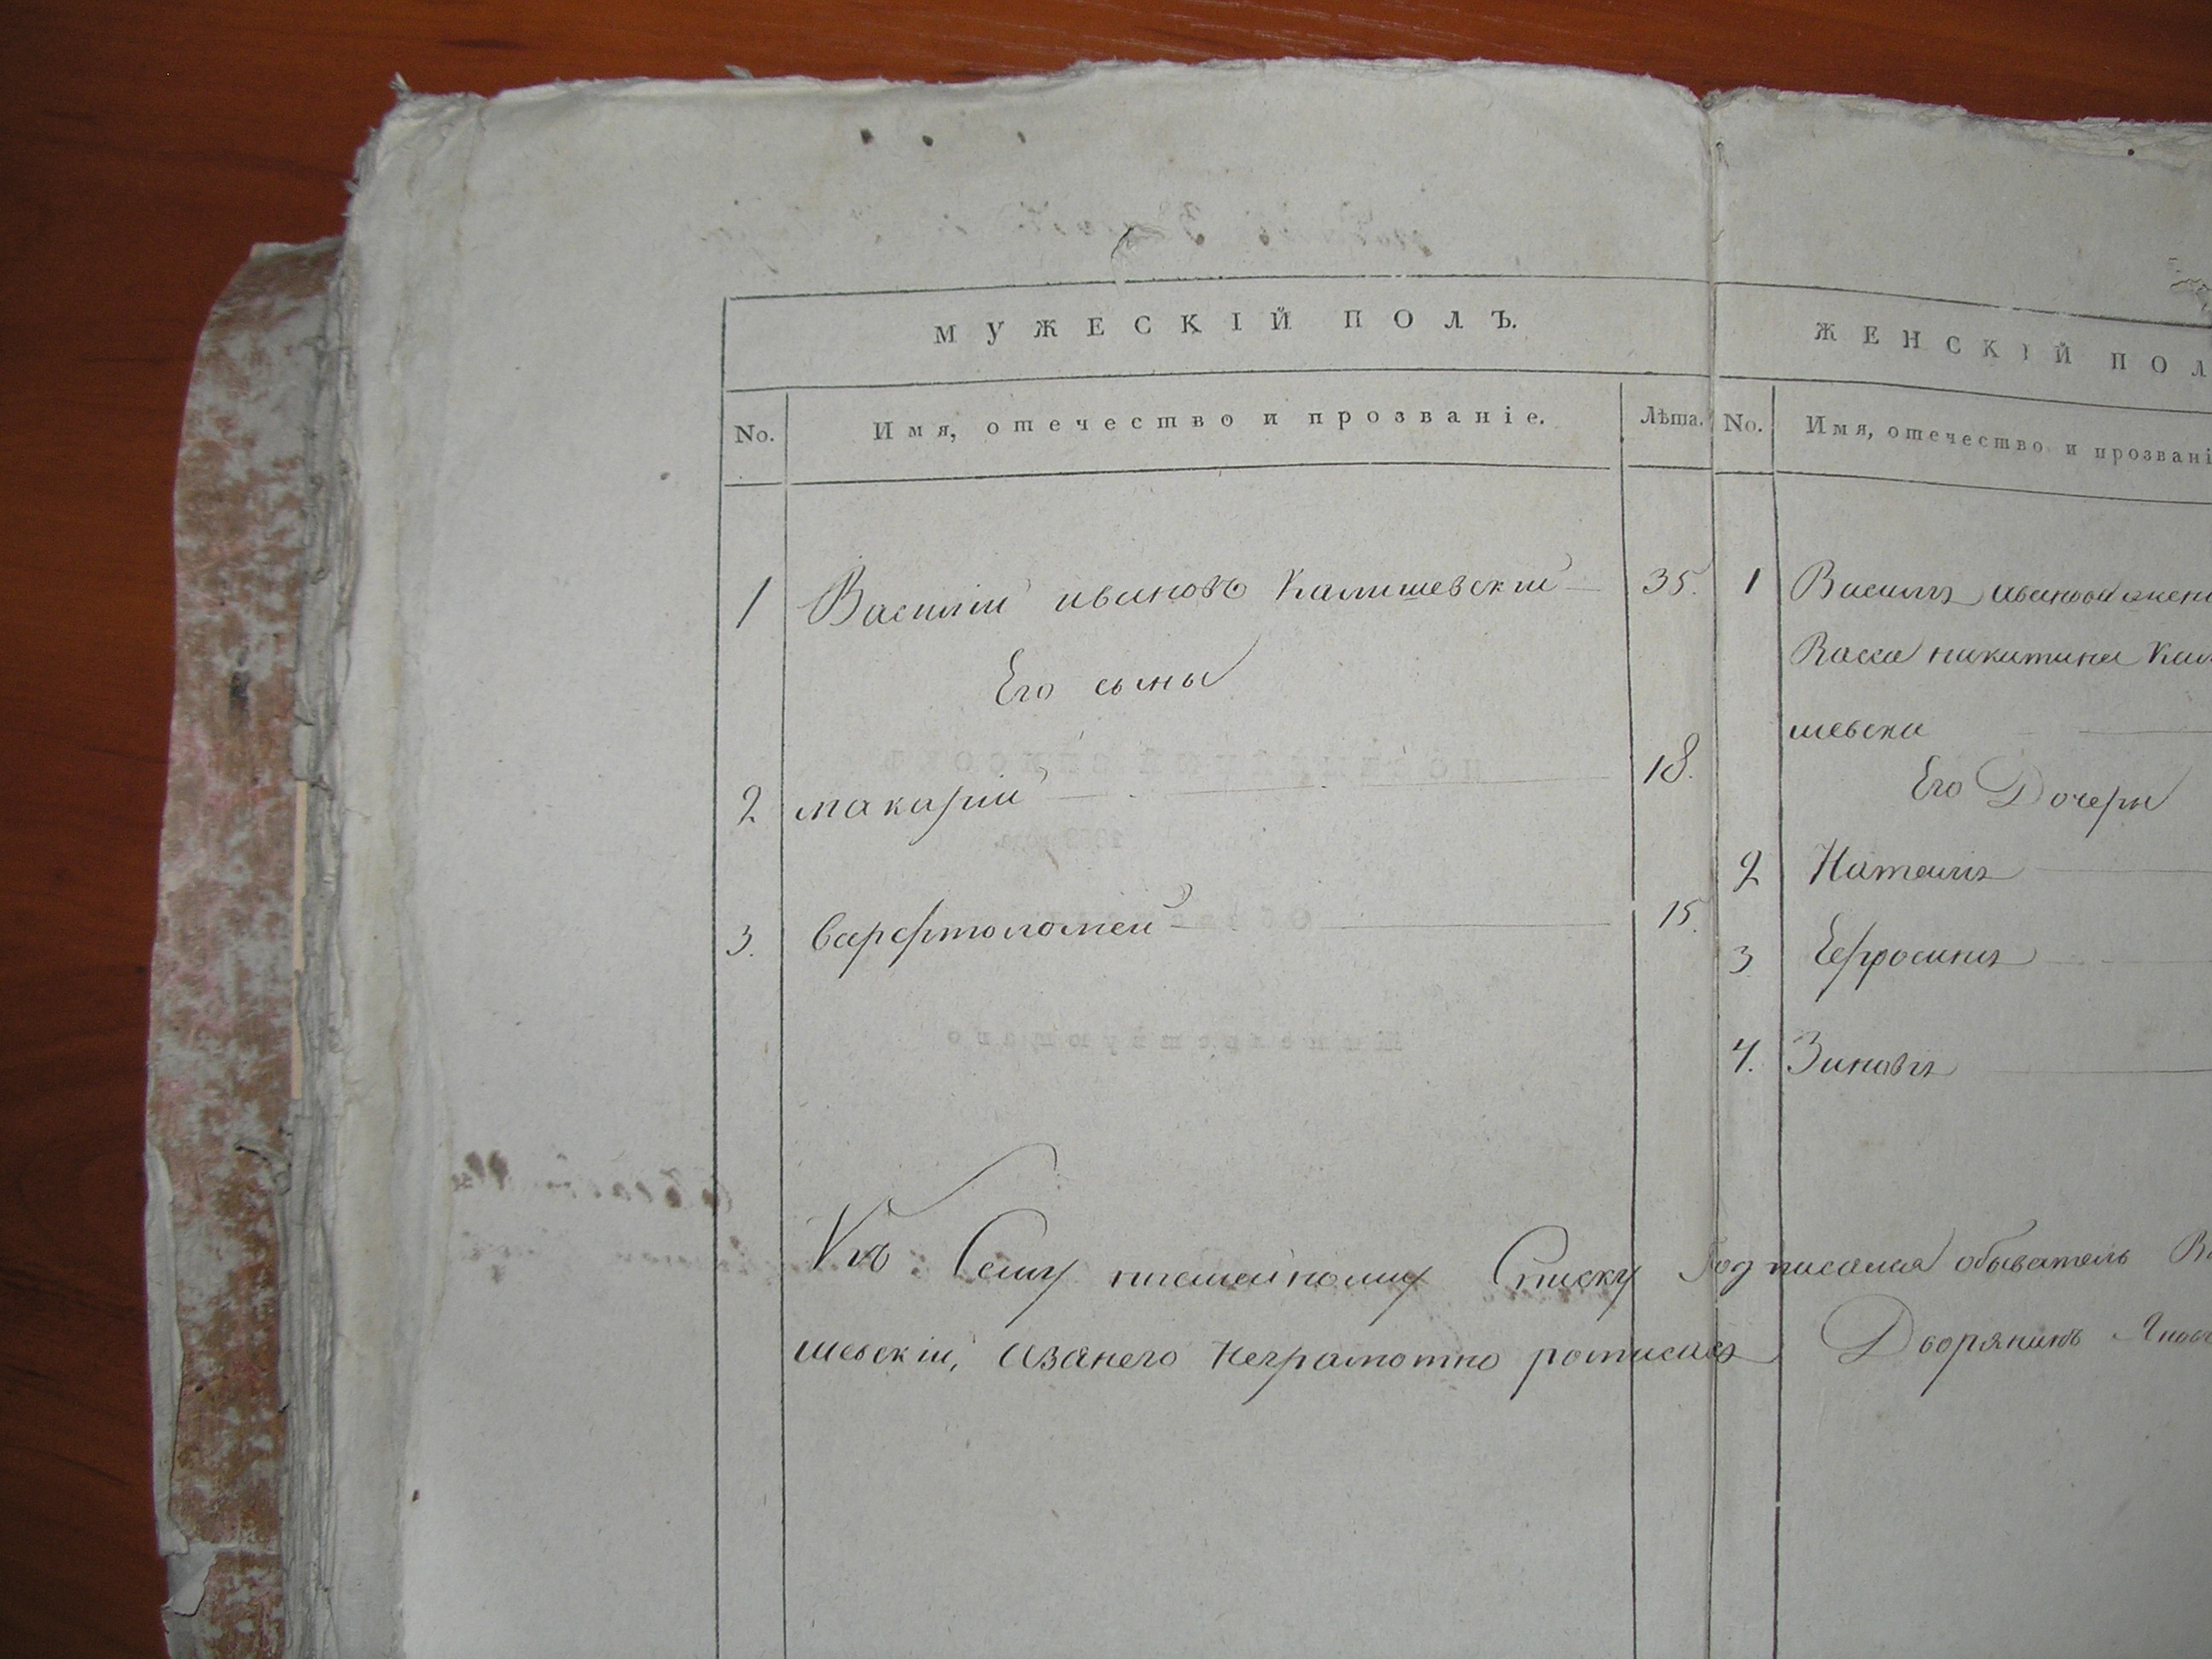 МУЖЕСКІЙ ПОЛЪ.
No. Имя, отечество и прозваніе. Лѣта.
1 Василій ивановъ Калишевскій 35.
Его сыны
2 макарій 18.
3. варфтоломей 15.
ЖЕНСКІЙ ПОЛ
No. Имя, отечество и прозвані
1 Василя иванова жена
Васса никитина Кал
шевска
Его Дочери
2 Наталия
3 Ефросиния
4. Зиновия
Къ Сему Списку Подписался обыватель В
шевскій, азанего неграмотно росписался Дворянинъ